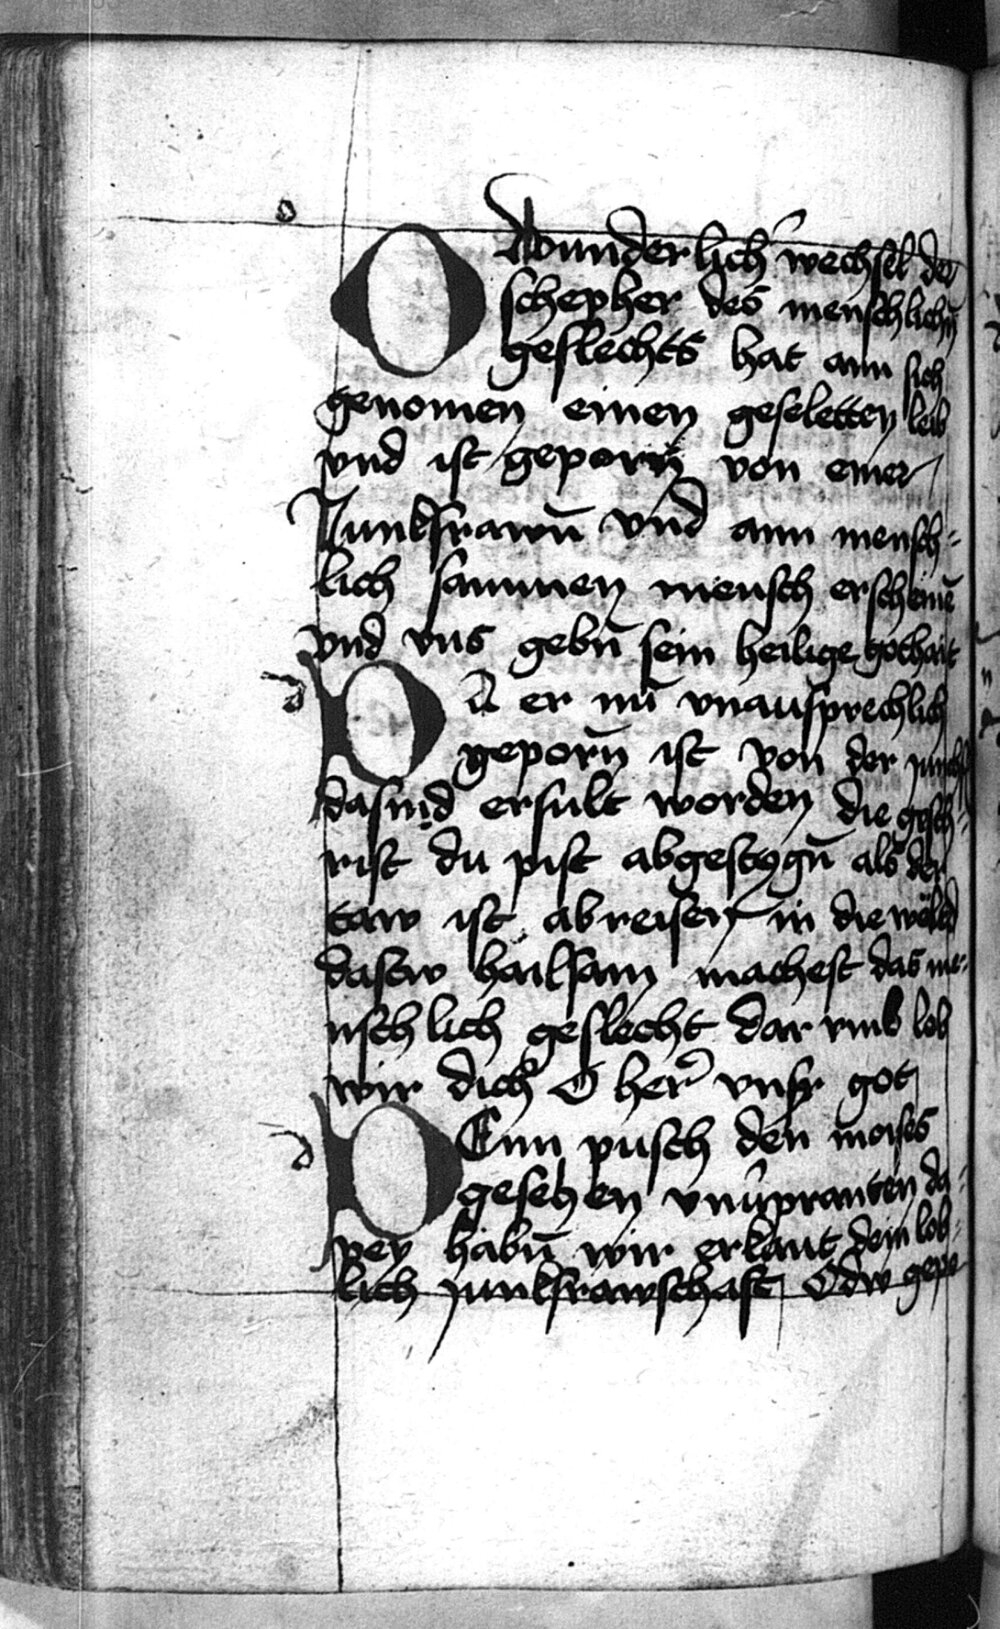 O Wunderlicher wechsel der
schepher des menschlichn̄
geslechts hat ann sich
genomen einen geseletten leib
vnd ist geporn̄ von einer
Junkfrawn̄ vnd ann mensch-
lich sammen mensch erscheinē
vnd vns gebn̄ sein heilige gothait
Da er nū vnausprechlich
geporn̄ ist von der
da sind erfult worden die gsch-
rift du pist abgestign̄ als der
taw ist abreisen in die
dastw hailsam machest das me-
nschlich geslecht dar vmb lob
wir dich O her vnser got
DEnn pusch den moises
gesehen vnūpranten da-
pey habn̄ wir erkant dein lob-
lich junkfrawschaft O dw gepe